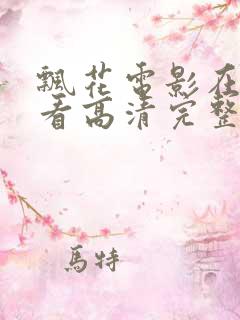 飄花電影在
看高清完整
馬特